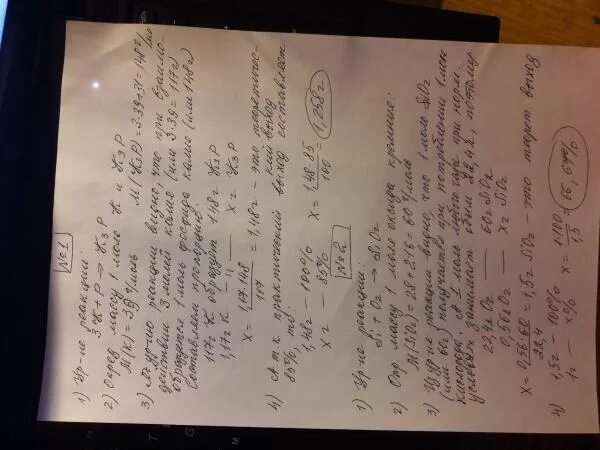 №1
1) Ур-ие реакции:
3K + P → K3P
2) Опред массу 1 моле K и K3P
M(K) = 39 г/моль M(K3P) = 3·39+31 = 148 г/мо
3) урию реакции видно, что при взаимо-
действии 3 молей калие (или 3·39 = 117 г)
образуетсе 1 моль фосфида калие (или 148 г)
Составлаем пропорцию:
117 г K образует 148 г K3P
1,17 г K — " — X г K3P
X = 1,17·148 / 117 = 1,48 г – это теоретичес-
кий выход
4) А т.к практический выход составлает
85%, то:
1,48 г – 100% X = 1,48·85 / 100 = 1,258 г
X г – 85%
№2
1) Ур-ие реакции:
Si + O2 → SiO2
2) Опр. массу 1 моле оксида кремние:
M(SiO2) = 28 + 2·16 = 60 г/моль
3) Из ур-ие реакции видно, что 1 моль SiO2
(или 60 г) получаетсе при потреблении 1 моле
кислорода. 1 моль любого газа при норм.
условиех занимает объем 22,4 л, поэтому
22,4 л O2 — 60 г SiO2
0,56 л O2 — X г SiO2
X = 0,56·60 / 22,4 = 1,5 г SiO2 – это теорет выход
4) 1,5 г – 100% X = 1·100 / 1,5 = 66,67%
1 г — X%